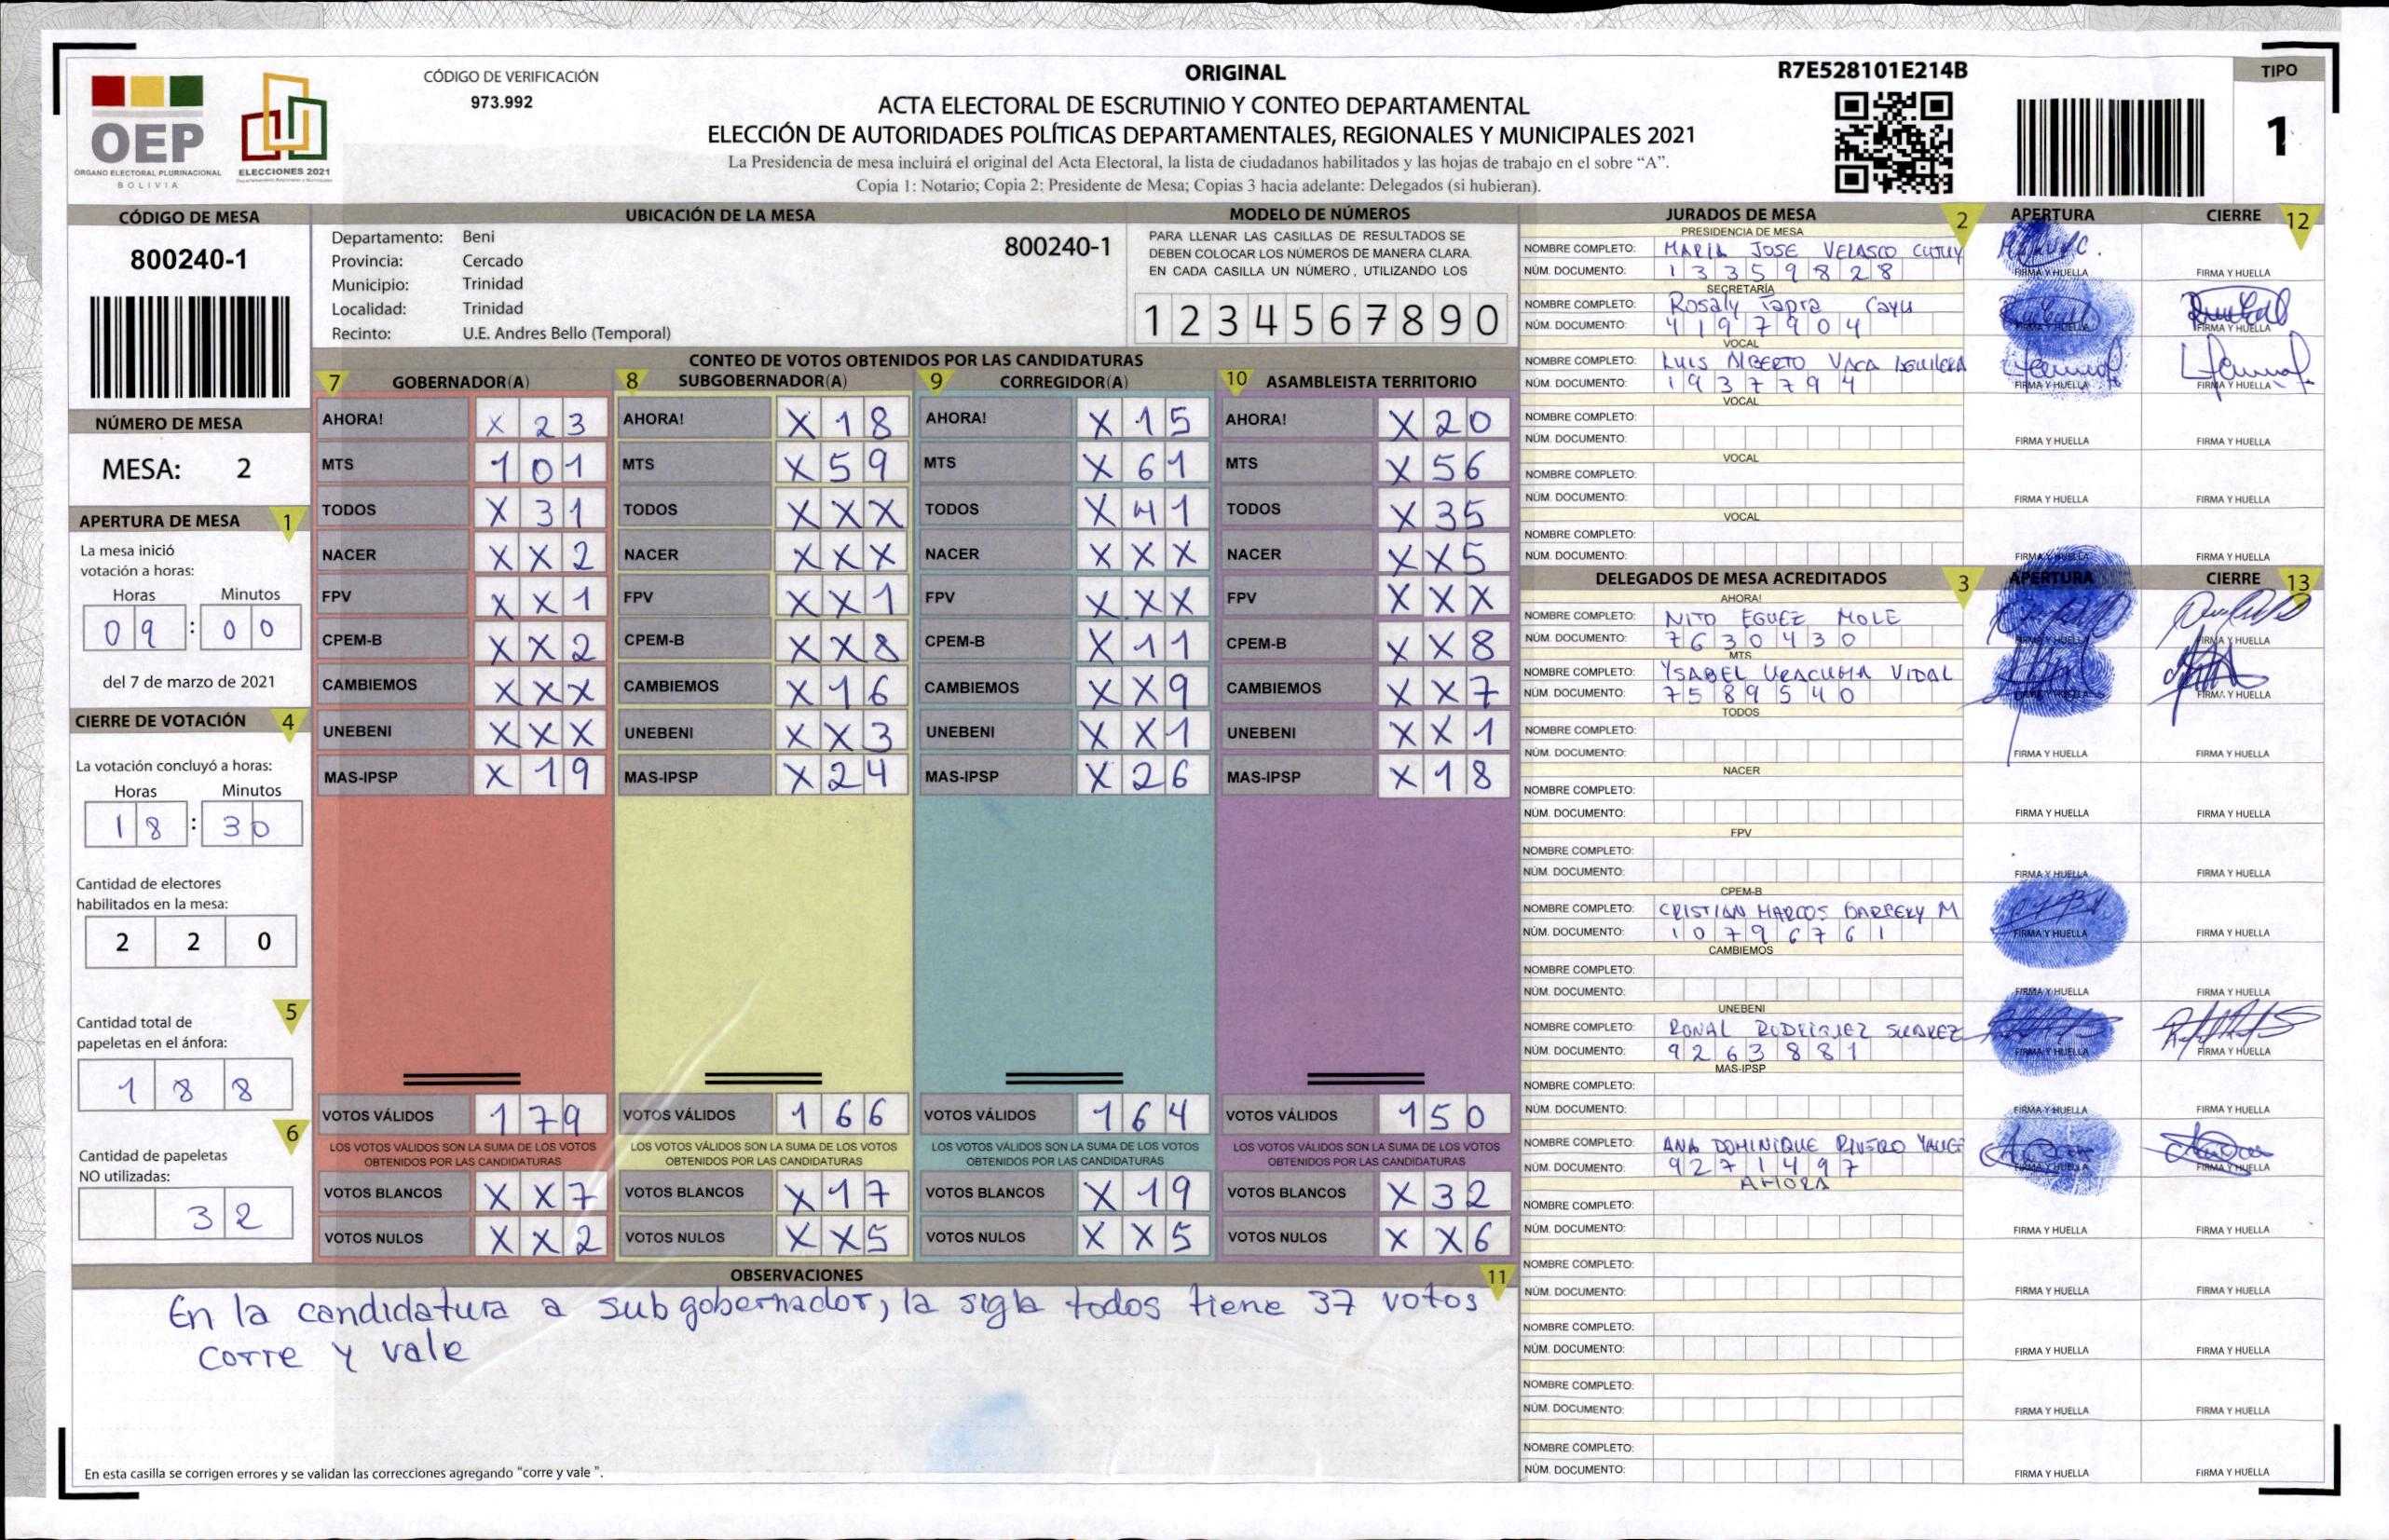 OEP
ÓRGANO ELECTORAL PLURINACIONAL
BOLIVIA
ELECCIONES 2021
CÓDIGO DE VERIFICACIÓN
973.992
ORIGINAL
ACTA ELECTORAL DE ESCRUTINIO Y CONTEO DEPARTAMENTAL
ELECCIÓN DE AUTORIDADES POLÍTICAS DEPARTAMENTALES, REGIONALES Y MUNICIPALES 2021
La Presidencia de mesa incluirá el original del Acta Electoral, la lista de ciudadanos habilitados y las hojas de trabajo en el sobre “A”.
Copia 1: Notario; Copia 2: Presidente de Mesa; Copias 3 hacia adelante: Delegados (si hubieran).
R7E528101E214B
TIPO
1
CÓDIGO DE MESA
800240-1
NÚMERO DE MESA
MESA: 2
APERTURA DE MESA 1
La mesa inició
votación a horas:
Horas Minutos
09 : 00
del 7 de marzo de 2021
CIERRE DE VOTACIÓN 4
La votación concluyó a horas:
Horas Minutos
18 : 30
Cantidad de electores
habilitados en la mesa:
2 2 0
5
Cantidad total de
papeletas en el ánfora:
1 8 8
6
Cantidad de papeletas
NO utilizadas:
3 2
UBICACIÓN DE LA MESA
Departamento: Beni
Provincia: Cercado
Municipio: Trinidad
Localidad: Trinidad
Recinto: U.E. Andres Bello (Temporal)
800240-1
MODELO DE NÚMEROS
PARA LLENAR LAS CASILLAS DE RESULTADOS SE
DEBEN COLOCAR LOS NÚMEROS DE MANERA CLARA.
EN CADA CASILLA UN NÚMERO, UTILIZANDO LOS
1 2 3 4 5 6 7 8 9 0
CONTEO DE VOTOS OBTENIDOS POR LAS CANDIDATURAS
7 GOBERNADOR(A) 8 SUBGOBERNADOR(A) 9 CORREGIDOR(A) 10 ASAMBLEISTA TERRITORIO
AHORA! X 2 3 AHORA! X 1 8 AHORA! X 1 5 AHORA! X 2 0
MTS 1 0 1 MTS X 5 9 MTS X 6 1 MTS X 5 6
TODOS X 3 1 TODOS X X X TODOS X 4 1 TODOS X 3 5
NACER X X 2 NACER X X X NACER X X X NACER X X 5
FPV X X 1 FPV X X 1 FPV X X X FPV X X X
CPEM-B X X 2 CPEM-B X X 8 CPEM-B X 1 1 CPEM-B X X 8
CAMBIEMOS X X X CAMBIEMOS X 1 6 CAMBIEMOS X X 9 CAMBIEMOS X X 7
UNEBENI X X X UNEBENI X X 3 UNEBENI X X 1 UNEBENI X X 1
MAS-IPSP X 1 9 MAS-IPSP X 2 4 MAS-IPSP X 2 6 MAS-IPSP X 1 8
VOTOS VÁLIDOS 1 7 9 VOTOS VÁLIDOS 1 6 6 VOTOS VÁLIDOS 1 6 4 VOTOS VÁLIDOS 1 5 0
LOS VOTOS VÁLIDOS SON LA SUMA DE LOS VOTOS LOS VOTOS VÁLIDOS SON LA SUMA DE LOS VOTOS LOS VOTOS VÁLIDOS SON LA SUMA DE LOS VOTOS LOS VOTOS VÁLIDOS SON LA SUMA DE LOS VOTOS
OBTENIDOS POR LAS CANDIDATURAS OBTENIDOS POR LAS CANDIDATURAS OBTENIDOS POR LAS CANDIDATURAS OBTENIDOS POR LAS CANDIDATURAS
VOTOS BLANCOS X X 7 VOTOS BLANCOS X 1 7 VOTOS BLANCOS X 1 9 VOTOS BLANCOS X 3 2
VOTOS NULOS X X 2 VOTOS NULOS X X 5 VOTOS NULOS X X 5 VOTOS NULOS X X 6
OBSERVACIONES 11
En la candidatura a subgobernador, la sigla todos tiene 37 votos
corre y vale
En esta casilla se corrigen errores y se validan las correcciones agregando “corre y vale”.
JURADOS DE MESA 2 APERTURA CIERRE 12
PRESIDENCIA DE MESA
NOMBRE COMPLETO: MARIA JOSE VELASCO
NÚM. DOCUMENTO: 13359828 FIRMA Y HUELLA FIRMA Y HUELLA
SECRETARÍA
NOMBRE COMPLETO: Rosaly Tapia Cayu
NÚM. DOCUMENTO: 4197904 FIRMA Y HUELLA FIRMA Y HUELLA
VOCAL
NOMBRE COMPLETO: LUIS ALBERTO VACA AGUILERA
NÚM. DOCUMENTO: 1937794 FIRMA Y HUELLA FIRMA Y HUELLA
VOCAL
NOMBRE COMPLETO:
NÚM. DOCUMENTO: FIRMA Y HUELLA FIRMA Y HUELLA
VOCAL
NOMBRE COMPLETO:
NÚM. DOCUMENTO: FIRMA Y HUELLA FIRMA Y HUELLA
VOCAL
NOMBRE COMPLETO:
NÚM. DOCUMENTO: FIRMA Y HUELLA FIRMA Y HUELLA
DELEGADOS DE MESA ACREDITADOS 3 APERTURA CIERRE 13
AHORA!
NOMBRE COMPLETO: NITO EGUEZ MOLE
NÚM. DOCUMENTO: 7630430 FIRMA Y HUELLA FIRMA Y HUELLA
MTS
NOMBRE COMPLETO: YSABEL VIDAL
NÚM. DOCUMENTO: 7589540 FIRMA Y HUELLA FIRMA Y HUELLA
TODOS
NOMBRE COMPLETO:
NÚM. DOCUMENTO: FIRMA Y HUELLA FIRMA Y HUELLA
NACER
NOMBRE COMPLETO:
NÚM. DOCUMENTO: FIRMA Y HUELLA FIRMA Y HUELLA
FPV
NOMBRE COMPLETO:
NÚM. DOCUMENTO: FIRMA Y HUELLA FIRMA Y HUELLA
CPEM-B
NOMBRE COMPLETO: CRISTIAN MARCOS M
NÚM. DOCUMENTO: 10796761 FIRMA Y HUELLA FIRMA Y HUELLA
CAMBIEMOS
NOMBRE COMPLETO:
NÚM. DOCUMENTO: FIRMA Y HUELLA FIRMA Y HUELLA
UNEBENI
NOMBRE COMPLETO: RONAL RODRIGUEZ SUAREZ
NÚM. DOCUMENTO: 9263881 FIRMA Y HUELLA FIRMA Y HUELLA
MAS-IPSP
NOMBRE COMPLETO:
NÚM. DOCUMENTO: FIRMA Y HUELLA FIRMA Y HUELLA
NOMBRE COMPLETO: ANA DOMINIQUE RIVERO
NÚM. DOCUMENTO: 9271497 FIRMA Y HUELLA FIRMA Y HUELLA
AHORA
NOMBRE COMPLETO:
NÚM. DOCUMENTO: FIRMA Y HUELLA FIRMA Y HUELLA
NOMBRE COMPLETO:
NÚM. DOCUMENTO: FIRMA Y HUELLA FIRMA Y HUELLA
NOMBRE COMPLETO:
NÚM. DOCUMENTO: FIRMA Y HUELLA FIRMA Y HUELLA
NOMBRE COMPLETO:
NÚM. DOCUMENTO: FIRMA Y HUELLA FIRMA Y HUELLA
NOMBRE COMPLETO:
NÚM. DOCUMENTO: FIRMA Y HUELLA FIRMA Y HUELLA